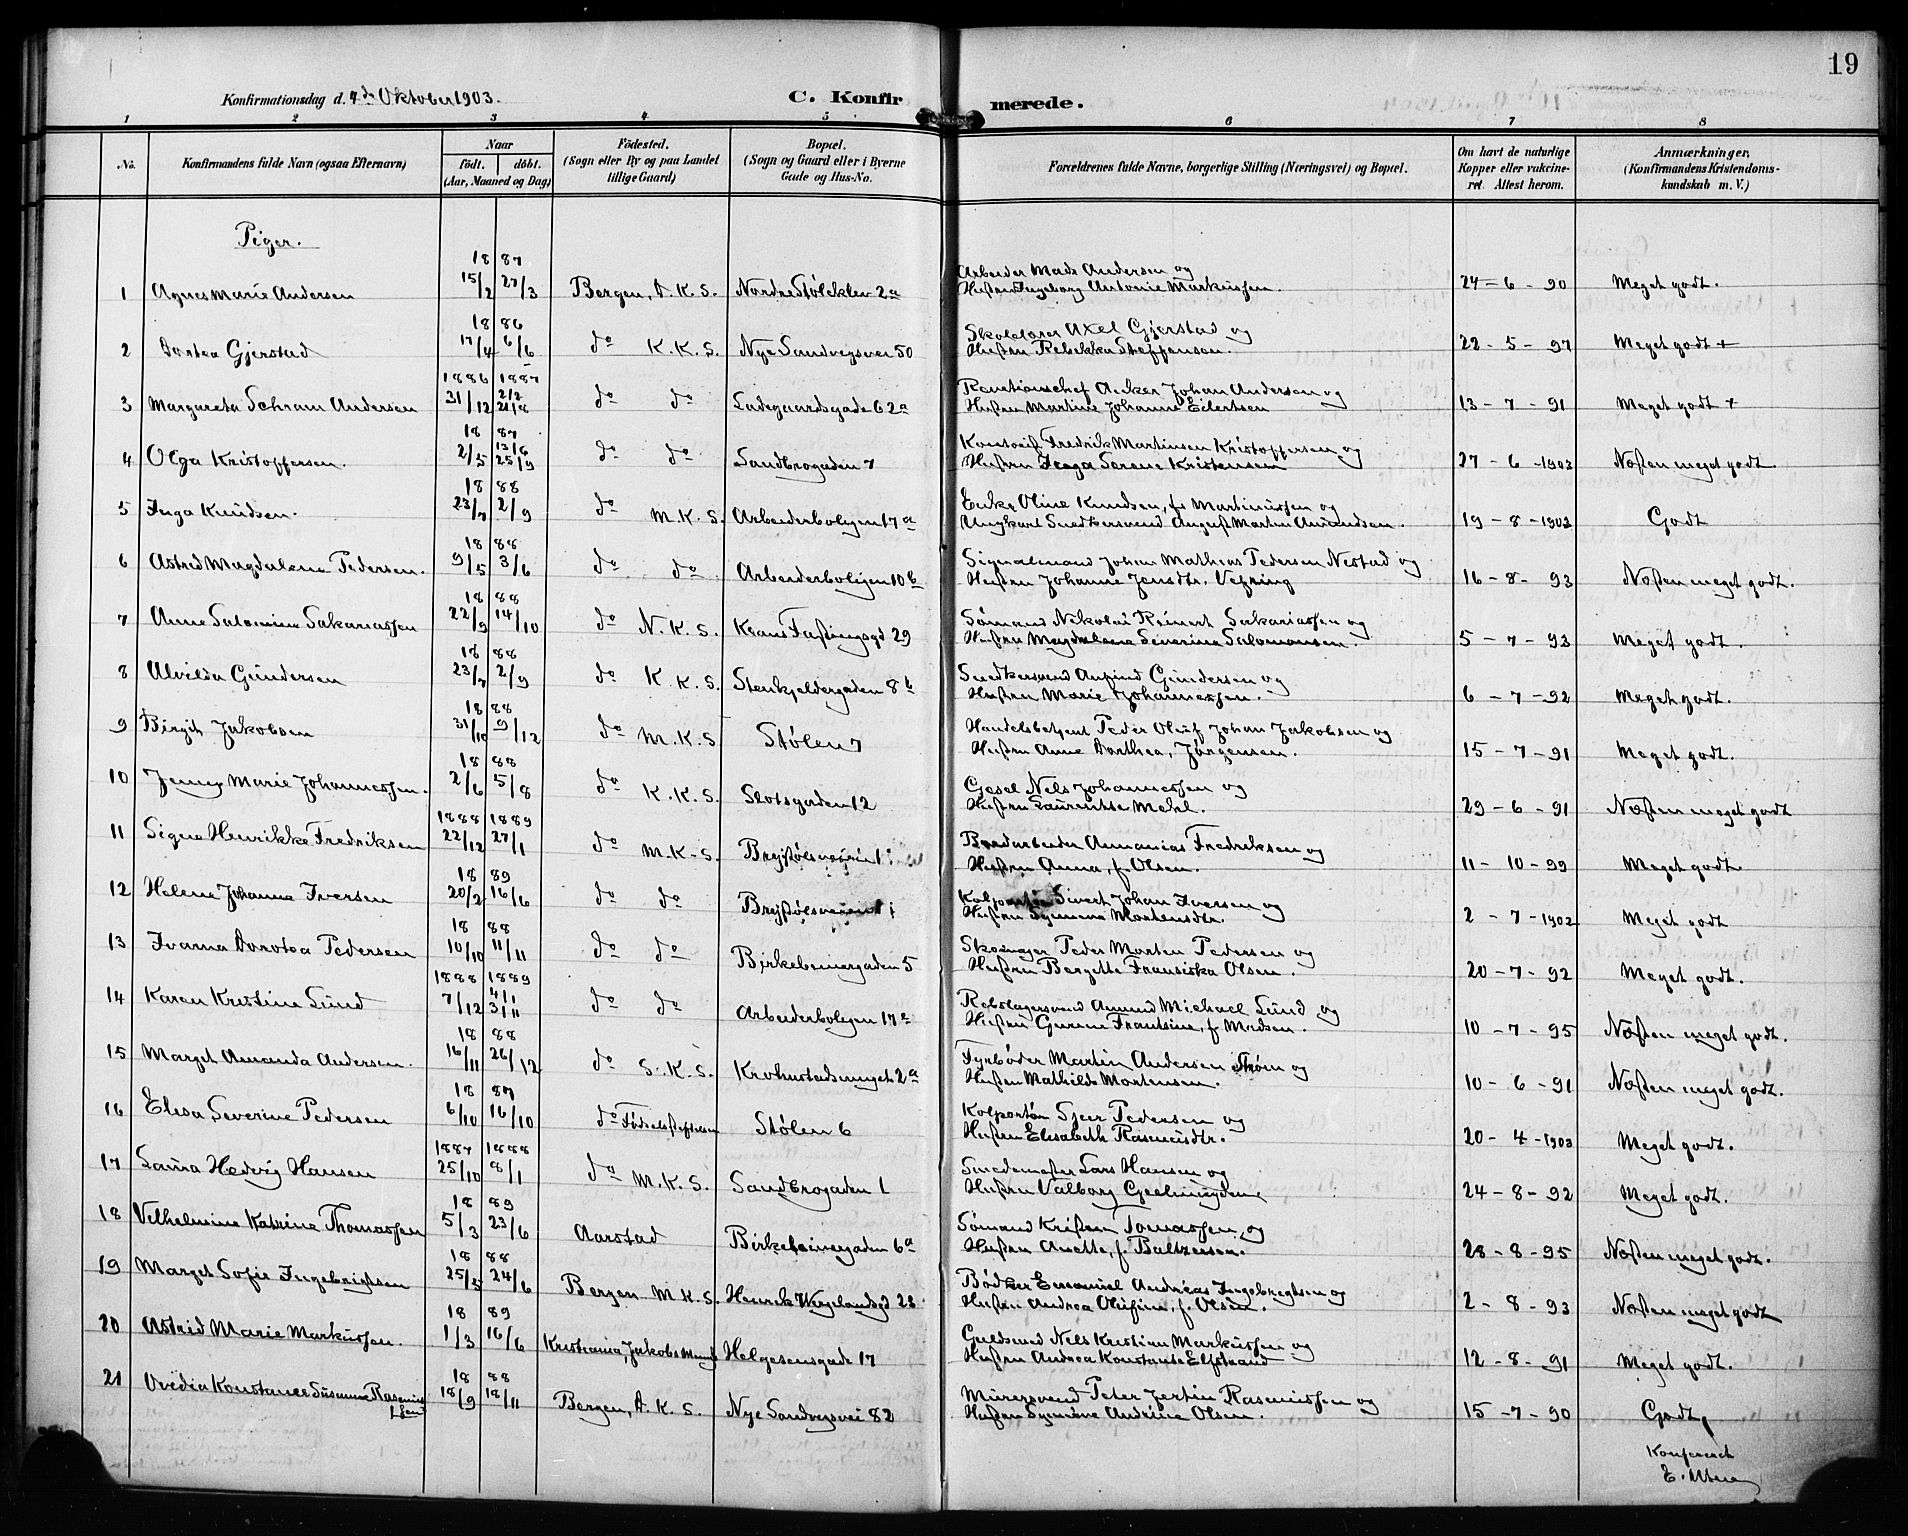 19
Konfirmationsdag d. 4de Oktober 1903.
C. Konfirmerede.
1 2 3 4 5 6 7 8
No. Konfirmandens fulde Navn (ogsaa Efternavn) Naar födt. döbt. (Aar, Maaned og Dag) Födested. (Sogn eller By og paa Landet tillige Gaard) Bopæl. (Sogn og Gaard eller i Byerne Gade og Hus-No. Forældrenes fulde Navne, borgerlige Stilling (Næringsvei) og Bopæl. Om havt de naturlige Kopper eller vakcineret. Attest herom. Anmærkninger, (Konfirmandens Kristendomskundskab m. V.)
Piger.
1 Agnes Marie Andersen 18 87 15/2 27/3 Bergen, D. K. S. Nordre Stølekleu 2a Arbeider Mads Andersen og Hustru Ingeborg Antonie Markussen. 24 = 6 - 90 Meget godt.
2 Dortea Gjerstad 18 86 17/4 6/6 do K. K. S. Nye Sandvigsvei 50 Skolelærer Axel Gjerstad og Hustru Rebekka Steffensen. 22 - 5 - 97 Meget godt +
3 Margareta Schram Andersen 1886 1887 31/12 2/2 21/8 do do Ladegaardsgade 62a Anker Johan Andersen og Hustru Martine Johanne Eilertsen 13 - 7 - 91 Meget godt +
4 Olga Kristoffersen. 18 87 2/5 13/6 25/9 do do Sandbrogaden 7 Fredrik Martinsen Kristoffersen og Hustru Inga Serene Kristensen 27 - 6 - 1903 Næsten meget godt.
5 Inga Knudsen. 18 88 23/7 2/9 do M. K. S. Arbeiderboligen 17a Enke Oline Knudsen, f. Martinussen og Ungkarl Snedkersvend August Martin Amundsen. 19 - 8 - 1902 Godt
6 Astrid Magdalene Pedersen. 18 88 9/5 3/6 do do Arbeiderboligen 10b Signalmand Johan Mathias Pedersen Nestad og Hustru Johanne Jensdtr. Vefring 16 - 8 - 93 Næsten meget godt.
7 Anne Salomine Sakariassen 18 88 22/9 14/10 do N. K. S. Klaus Fastingsgd 29 Sømand Nikolai Reinert Sakariassen og Hustru Magdalena Severine Salomonsen. 5 - 7 - 93 Meget godt.
8 Alvilda Gundersen 18 88 23/7 2/9 do K. K. S. Stenkjeldergaden 8b Snedkersvend Anfind Gundersen og Hustru Marie Johannessen. 6 - 7 - 92 Meget godt.
9 Birgit Jakobsen 18 88 31/10 9/12 do M. K. S Stølen 7 Handelsbetjent Peder Oluf Johan Jakobsen og Hustru Anne Dorthea, Jørgensen. 15 - 7 - 91 Meget godt.
10 Jenny Marie Johannessen. 18 88 2/6 5/8 do K. K. S. Slotsgaden 12 Gesel Nels Johannessen og Hustru Laurentse Mehl. 29 - 6 - 91 Næsten meget godt
11 Signe Henrikke Fredriksen 1888 1889 22/12 27/1 do M. K. S. Brejstølsveien 1 Ananias Fredriksen og Hustru Anna, f. Olsen. 11 - 10 - 99 Meget godt
12 Helene Johanna Iversen 18 89 20/2 16/6 do do Brejstølsveien 1 Kolportør Sivert Johan Iversen og Hustru Symena Mortensdtr. 2 - 7 - 1902 Meget godt
13 Ivarna Dorotea Pedersen 18 88 10/10 11/11 do do Birkebeinergaden 5 Skomager Peder Morten Pedersen og Hustru Bergette Fransiska Olsen. 20 - 7 - 92 Meget godt.
14 Karen Kristine Lund 1888 1889 7/12 4/1 3/11 do do Arbeiderboligen 17a Rebslagersvend Amund Michael Lund og Hustru Gurene Frantsine, f. Madsen. 10 - 7 - 95 Næsten meget godt.
15 Marget Amanda Andersen. 18 88 16/11 26/12 do S. K. S. Krohnstadsmuget 2a Fyrbøder Martin Andersen Strøm og Hustru Mathilde Mortensen. 10 - 6 - 91 Næsten meget godt.
16 Elisa Severine Pedersen 18 87 6/10 16/10 do Fødselsstiftelsen Stølen 6 Kolportør Sjeer Pedersen og Hustru Elisabeth Rasmusdtr. 20 - 4 - 1903 Meget godt.
17 Laura Hedvig Hansen 1887 1888 25/10 8/1 do M. K. S. Sandbrogaden 1 Smedemester Lars Hansen og Hustru Valborg Geelmuyden. 24 - 8 - 92 Meget godt.
18 Vilhelmine Katrine Thomassen 18 89 5/3 23/6 Aarstad Birkebeinergaden 6a Sømand Kristian Tomassen og Hustru Anette, f. Baltzersen. 28 - 8 - 95 Næsten meget godt.
19 Marget Sofie Ingebrigtsen 18 88 25/5 24/6 Bergen M. K. S. Henrik Wergelandsgd 28 Bødker Emanuel Andreas Ingebregtsen og Hustru Andrea Olufine, f. Olsen. 2 - 8 - 93 Næsten meget godt
20 Astrid Marie Markussen. 18 89 1/3 16/6 Kristiania, Jakobs Menigh Helgesensgade 17 Guldsmed Nils Kristian Markussen og Hustru Andrea Konstanse Elfstrand 12 - 8 - 91 Meget godt.
21 Ovedia Konstanse Susanne Rasmussen 18 88 18/9 18/11 Bergen, D. K. S. Nye Sandvigsvei 82 Murersvend Peter Jertin Rasmussen og Hustru Symøne Andrine Olsen. 15 - 7 - 90 Godt,
Konfereret